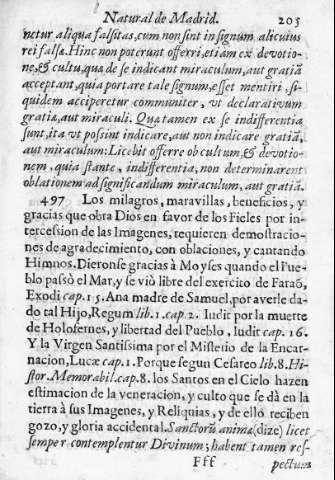 Natural de Madrid. 203
nctur aliqua falsitas, cum non sint in signum alicuius
rei falsæ. Hinc non poterunt offerri, etiam ex devotio-
ne, & cultu, quæ de se indicant miraculum, aut gratiã
acceptam, quia portare tale signum, esset mentiri, si-
quidem acciperetur communiter, vt declarativum
gratiæ, aut miraculi. Quæ tamen ex se indifferentia
sunt, ita vt possint indicare, aut non indicare gratiã,
aut miraculum: Licebit offerre ob cultum, & devotio-
nem, quia stante, indifferentia, non determinarent
oblationem ad significandum miraculum, aut gratiã.
497 Los milagros, maravillas, beneficios, y
gracias que obra Dios en favor de los Fieles por in-
tercession de las Imagenes, requieren demostracio-
nes de agradecimiento, con oblaciones, y cantando
Himnos. Dieronse gracias à Moyses quando el Pue-
blo passò el Mar, y se viò libre del exercito de Faraõ,
Exodi cap. 15. Ana madre de Samuel, por averle da-
do tal Hijo, Regum lib. 1. cap. 2. Iudit por la muerte
de Holofernes, y libertad del Pueblo, Iudit cap. 16.
Y la Virgen Santissima por el Misterio de la Encar-
nacion, Lucæ cap. 1. Porque segun Cesareo lib. 8. Hi-
stor. Memorabil. cap. 8. los Santos en el Cielo hazen
estimacion de la veneracion, y culto que se dà en la
tierra à sus Imagenes, y Reliquias, y de ello reciben
gozo, y gloria accidental. Sanctorũ animæ (dize) licet
semper contemplentur Divinum; habent tamen res-
Fff pectum